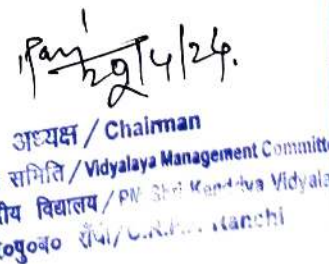 29/4/24.
अध्यक्ष / Chairman
समिति / Vidyalaya Management Committe
ीय विद्यालय / PM Shri Kendriya Vidyala
०पु०ब० राँची / C.R.P.F. Ranchi